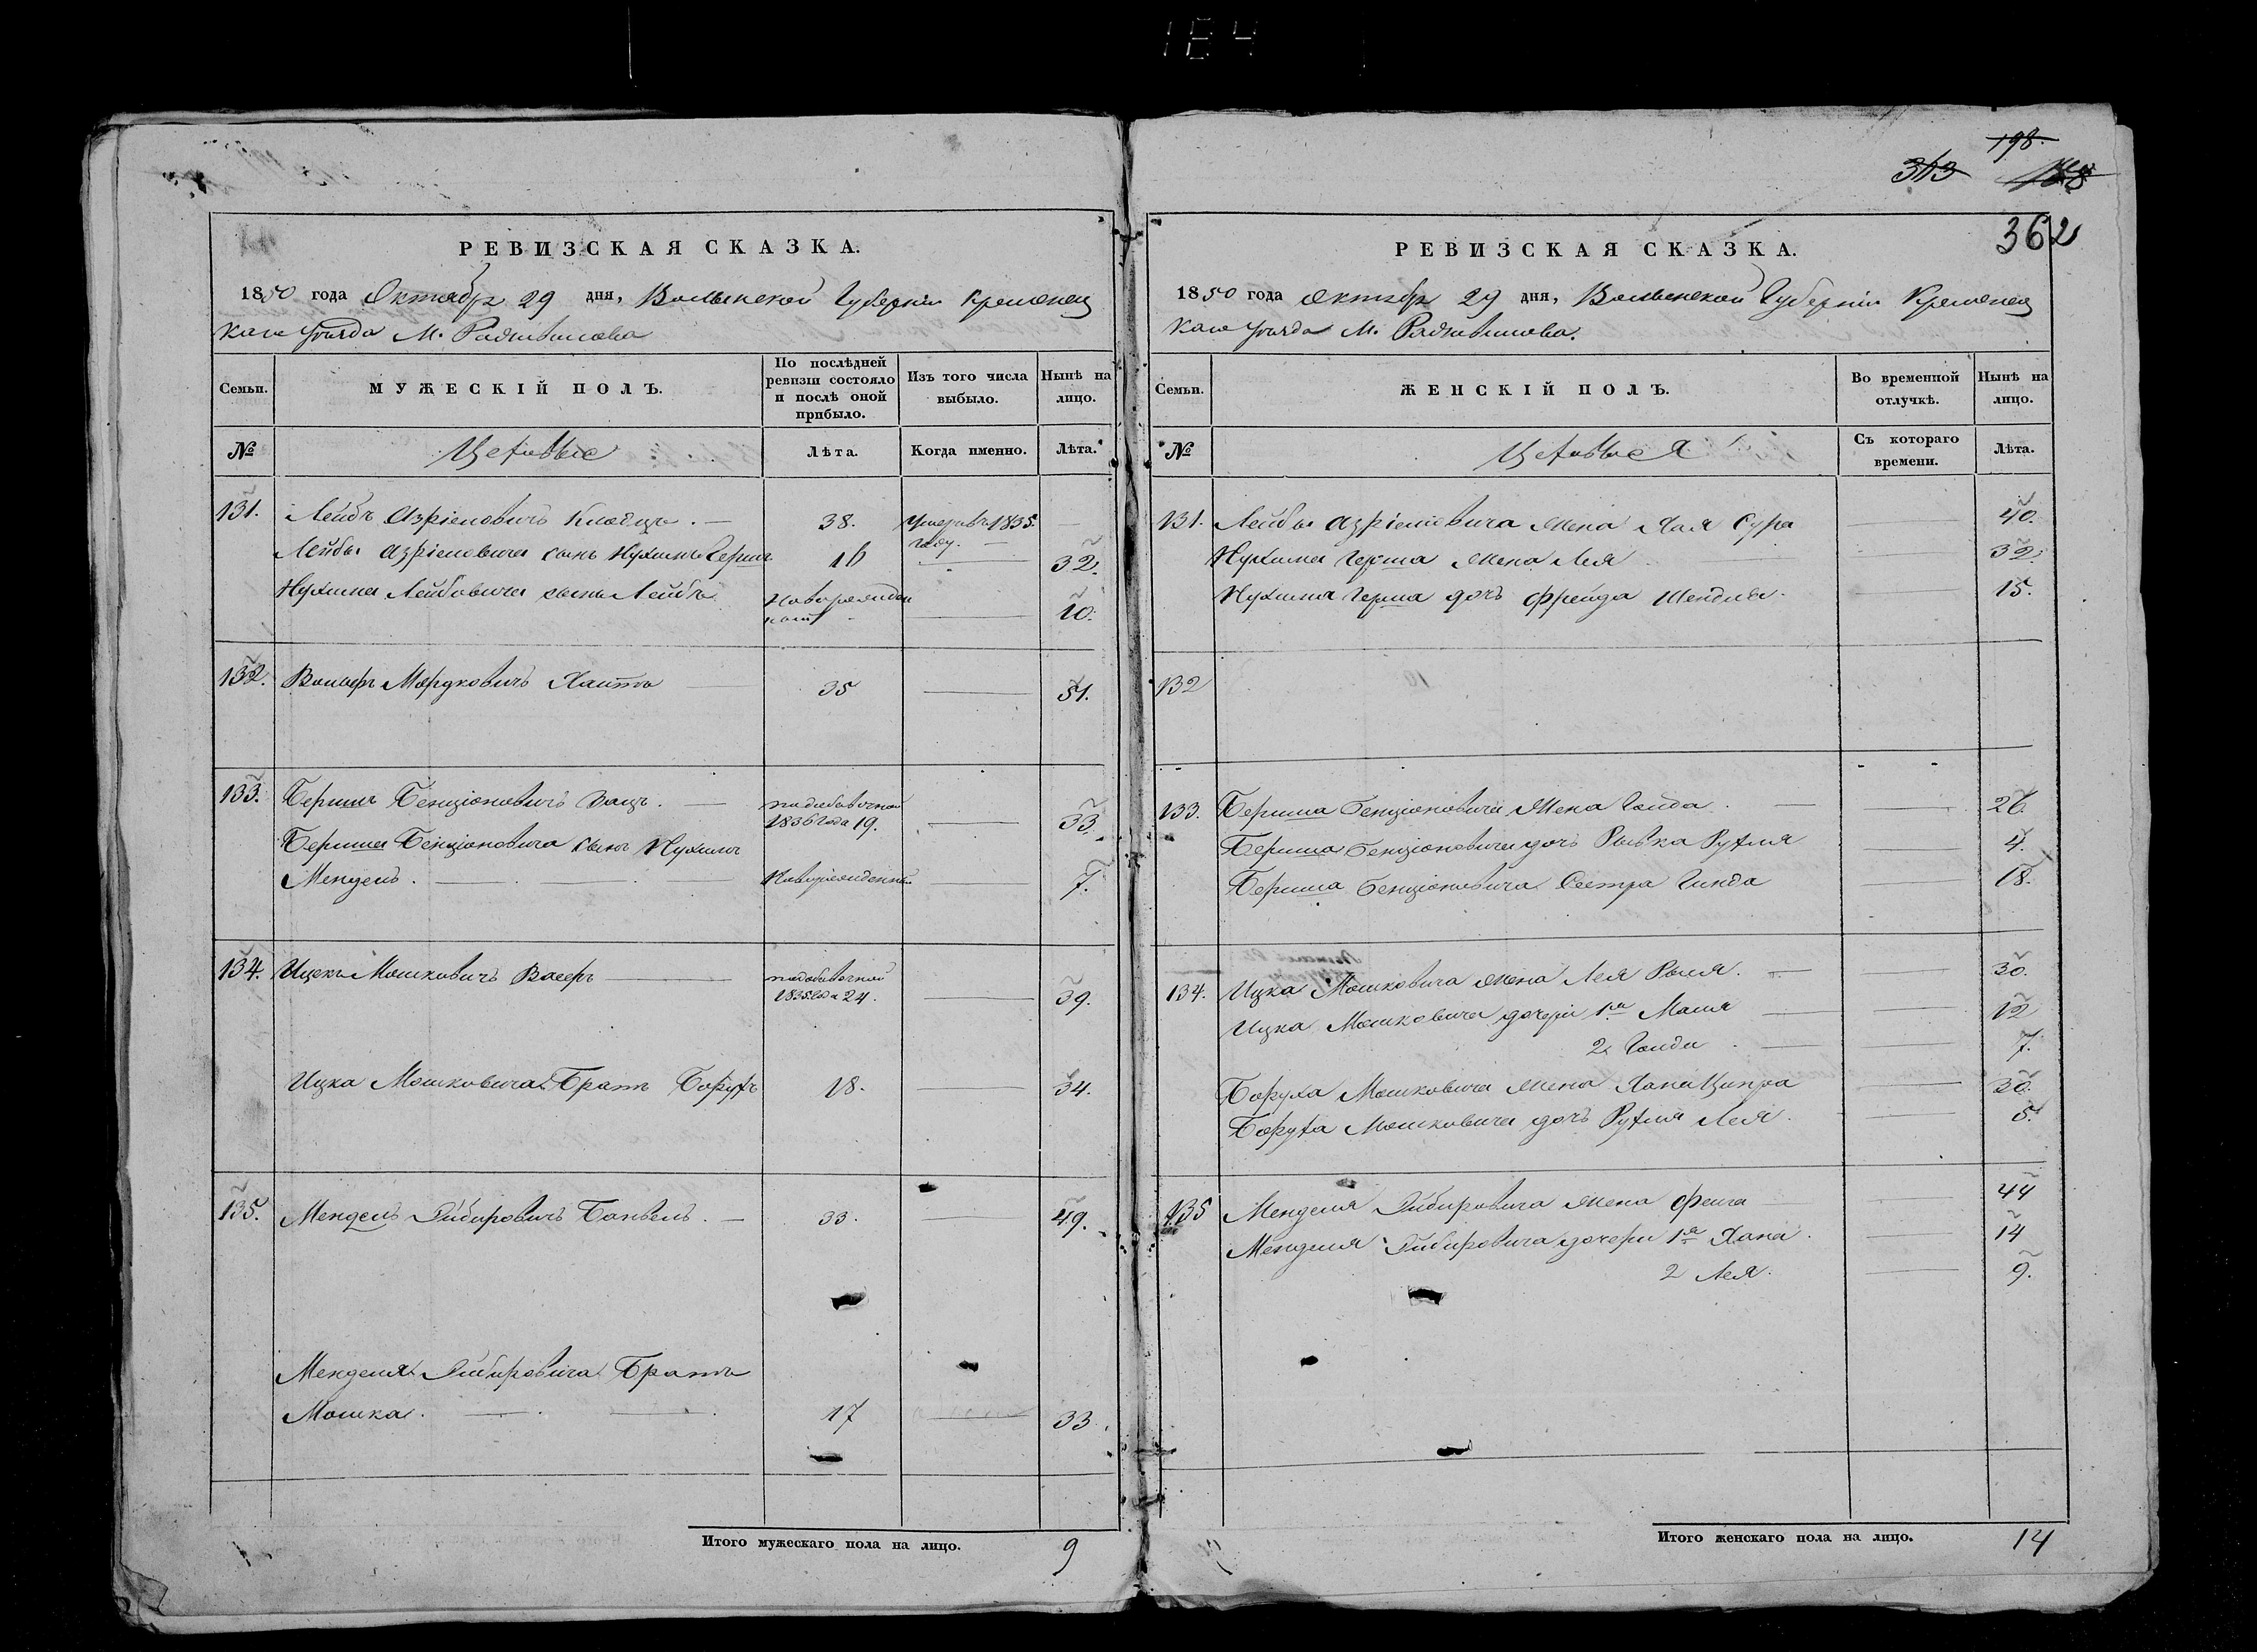 184
198.
313 188
362
РЕВИЗСКАЯ СКАЗКА.
1850 года Октября 29 дня, Волынской Губерніи Кременец
каго уѣзда М. Радзивилова
Семьи.
МУЖЕСКІЙ ПОЛЪ.
По послѣдней ревизіи состояло и послѣ оной прибыло.
Изъ того числа выбыло.
Нынѣ на лицо.
№
Цеховые
Лѣта.
Когда именно.
Лѣта.
131. Лейбъ Азріеловичъ 38. Умеръ въ 1835 году.
Лейбы Азріеловича сынъ Нухимъ Гершъ 16 32.
Нухима Лейбовича сынъ Лейбъ новорожден ный 10.
132. Вольфъ Мордковичъ 35 51.
133. Бершъ Бенціоновичъ Кацъ. по добавочной 1836 года 19. 33.
Берша Бенціоновича сынъ Нухимъ
Мендель. Новорожденный 7.
134. Ицекъ Мошковичъ Васеръ по добавочной 1835 года 24. 39.
Ицка Мошковича Братъ Борухъ 18. 34.
135. Мендель 33. 49.
Менделя Братъ
Мошка. 17 33.
Итого мужескаго пола на лицо. 9
РЕВИЗСКАЯ СКАЗКА.
1850 года Октября 29 дня, Волынской Губерніи Кременец
каго уѣзда М. Радзивилова.
Семьи.
ЖЕНСКІЙ ПОЛЪ.
Во временной отлучкѣ.
Нынѣ на лицо.
№
Цеховыя
Съ котораго времени.
Лѣта.
131. Лейбы Азріеловича жена Хая Сура 40.
Нухима Герша жена Лея 32.
Нухима Герша дочь Фрейда Шендля. 15.
132
133. Берша Бенціоновича жена Голда. 26.
Берша Бенціоновича дочь Рывка Рухля 4.
Берша Бенціоновича Сестра Гинда 18.
134. Ицка Мошковича жена Лея Рыля. 30.
Ицка Мошковича дочери 1я Маля 12
2я Голда. 7.
Боруха Мошковича жена Хана Ципра 30.
Боруха Мошковича дочь Рухля Лея. 5.
135 Менделя жена Фейга 44
Менделя дочери 1я Хана. 14
2 Лея. 9.
Итого женскаго пола на лицо. 14